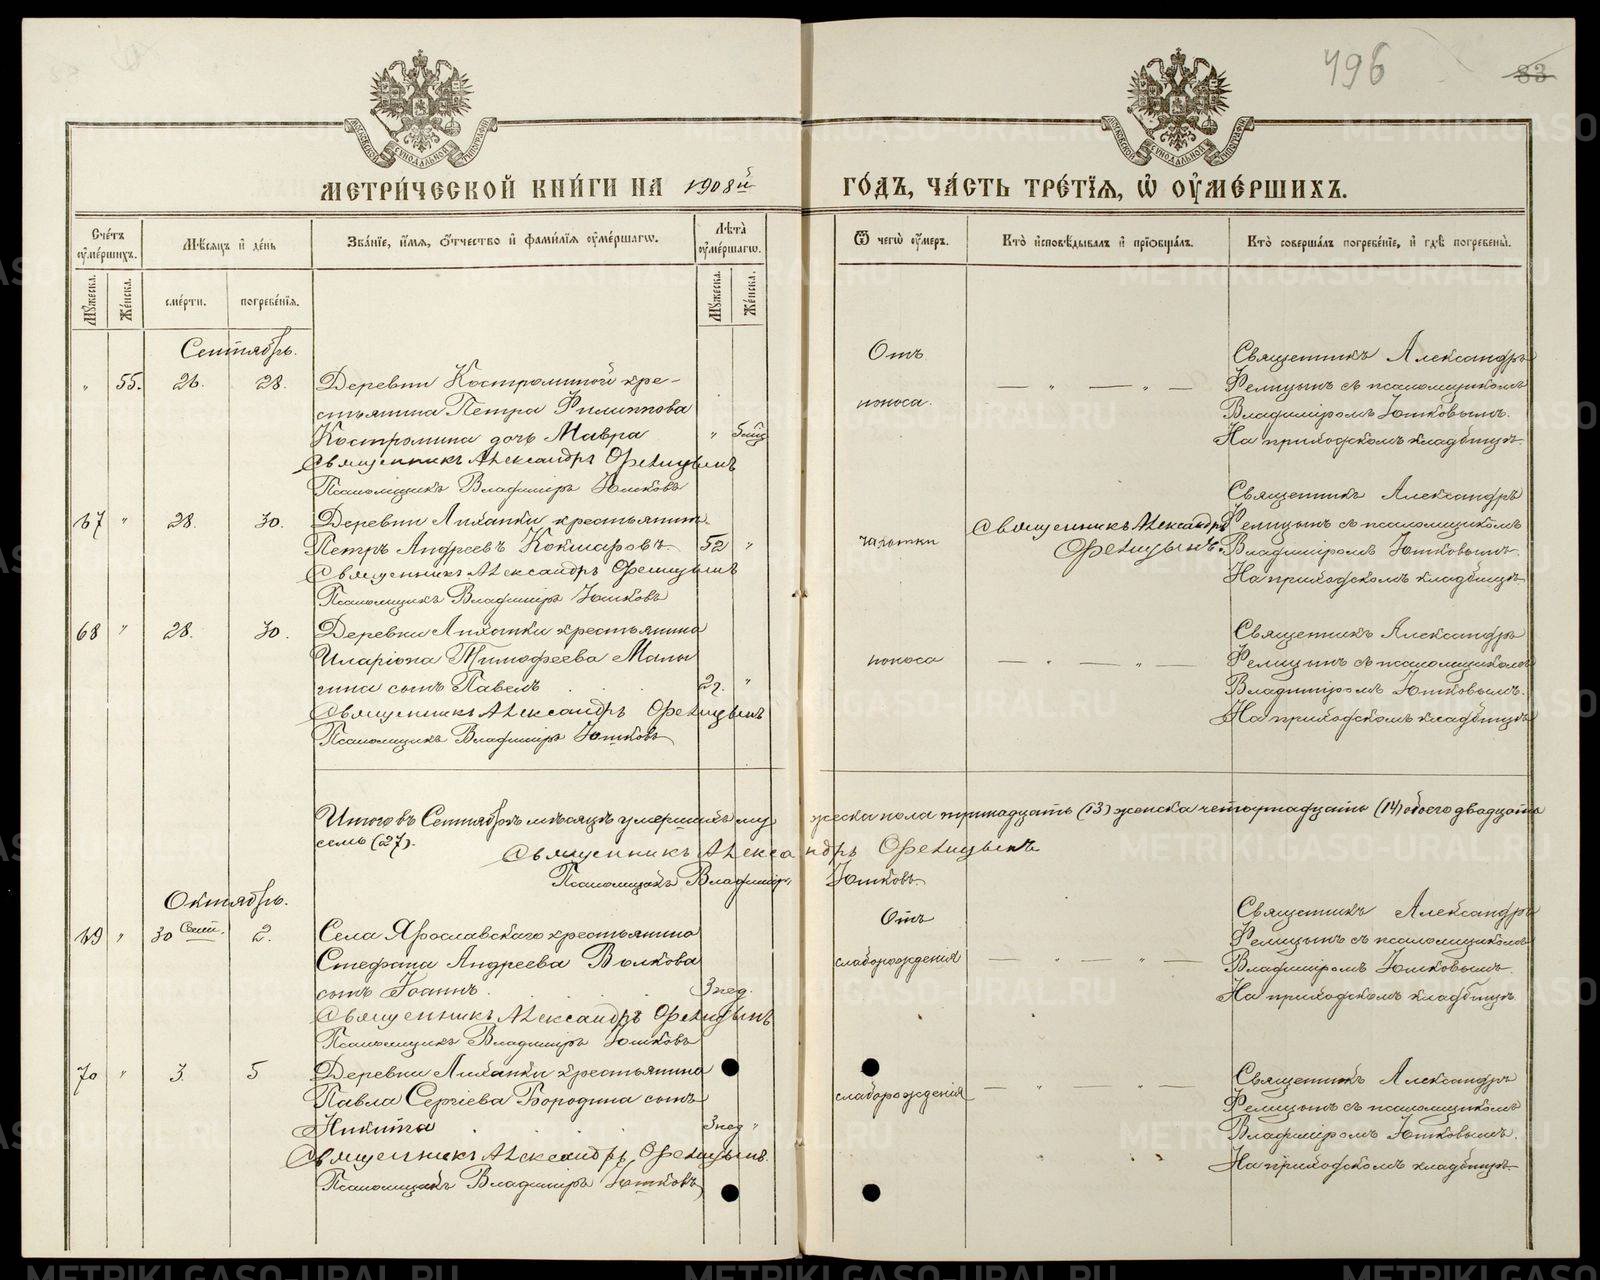 496
83
МЕТРИ́ЧЕСКОЙ КНИ́ГИ НА 1908й ГО́ДЪ, ЧА́СТЬ ТРЕ́ТІѦ, Ѡ҆ ОУ҆МЕ́РШИХЪ.
Сче́тъ оу҆ме́ршихъ.
Мꙋжеска.
Же́нска.
Мѣ́сѧцъ и҆ де́нь
сме́рти.
погребе́нїѧ.
Зва́нїе, и҆́мѧ, ѻ҆́тчество и҆ фами́лїѧ оу҆ме́ршагѡ.
Лѣ́та оу҆ме́ршагѡ.
Мꙋжеска.
Же́нска.
Ѿ чегѡ̀ оу҆́меръ.
Кто̀ и҆сповѣ́дывалъ и҆ прїѡбща́лъ.
Кто̀ соверша́лъ погребе́нїе, и҆ гдѣ̀ погребены̀.
Сентябрь.
" 55. 26. 28. Деревни Костроминой кре-
стьянина Петра Филиппова
Костромина дочь Мавра " 5 мц
Священникъ Александръ Фелицынъ
Псаломщикъ Владиміръ Юшковъ
Отъ
поноса.
— " — " —
Священникъ Александръ
Фелицынъ съ псаломщикомъ
Владиміромъ Юшковымъ.
На приходскомъ кладбищѣ.
67 " 28. 30. Деревни Лиханки крестьянинъ
Петръ Андреевъ Кокшаровъ 52 "
Священникъ Александръ Фелицынъ
Псаломщикъ Владиміръ Юшковъ
чахотки
Священникъ Александръ
Фелицынъ.
Священникъ Александръ
Фелицынъ съ псаломщикомъ
Владиміромъ Юшковымъ.
На приходскомъ кладбищѣ
68 " 28. 30. Деревни Лиханки крестьянина
Иларіона Тимофеева Малы
гина сынъ Павелъ 2г. "
Священникъ Александръ Фелицынъ
Псаломщикъ Владиміръ Юшковъ
поноса
— " — " —
Священникъ Александръ
Фелицынъ съ псаломщикомъ
Владиміромъ Юшковымъ.
На приходскомъ кладбищѣ
Итого въ Сентябрѣ мѣсяцѣ умершихъ мужеска пола тринадцать (13) женска четырнадцать (14) обоего двадцать
семь (27).
Священникъ Александръ Фелицынъ
Псаломщикъ Владиміръ Юшковъ
Октябрь.
69 " 30 Сент. 2. Села Ярославскаго крестьянина
Стефана Андреева Волкова
сынъ Іоаннъ. 3 нед.
Священникъ Александръ Фелицынъ
Псаломщикъ Владиміръ Юшковъ
Отъ
слаборожденія
— " — " —
Священникъ Александръ
Фелицынъ съ псаломщикомъ
Владиміромъ Юшковымъ.
На приходскомъ кладбищѣ.
70 " 3. 5 Деревни Лиханки крестьянина
Павла Сергіева Бородина сынъ
Никита 3 нед "
Священникъ Александръ Фелицынъ.
Псаломщикъ Владиміръ Юшковъ
слаборожденія
— " — " —
Священникъ Александръ
Фелицынъ съ псаломщикомъ
Владиміромъ Юшковымъ.
На приходскомъ кладбищѣ
METRIKI.GASO-URAL.RU